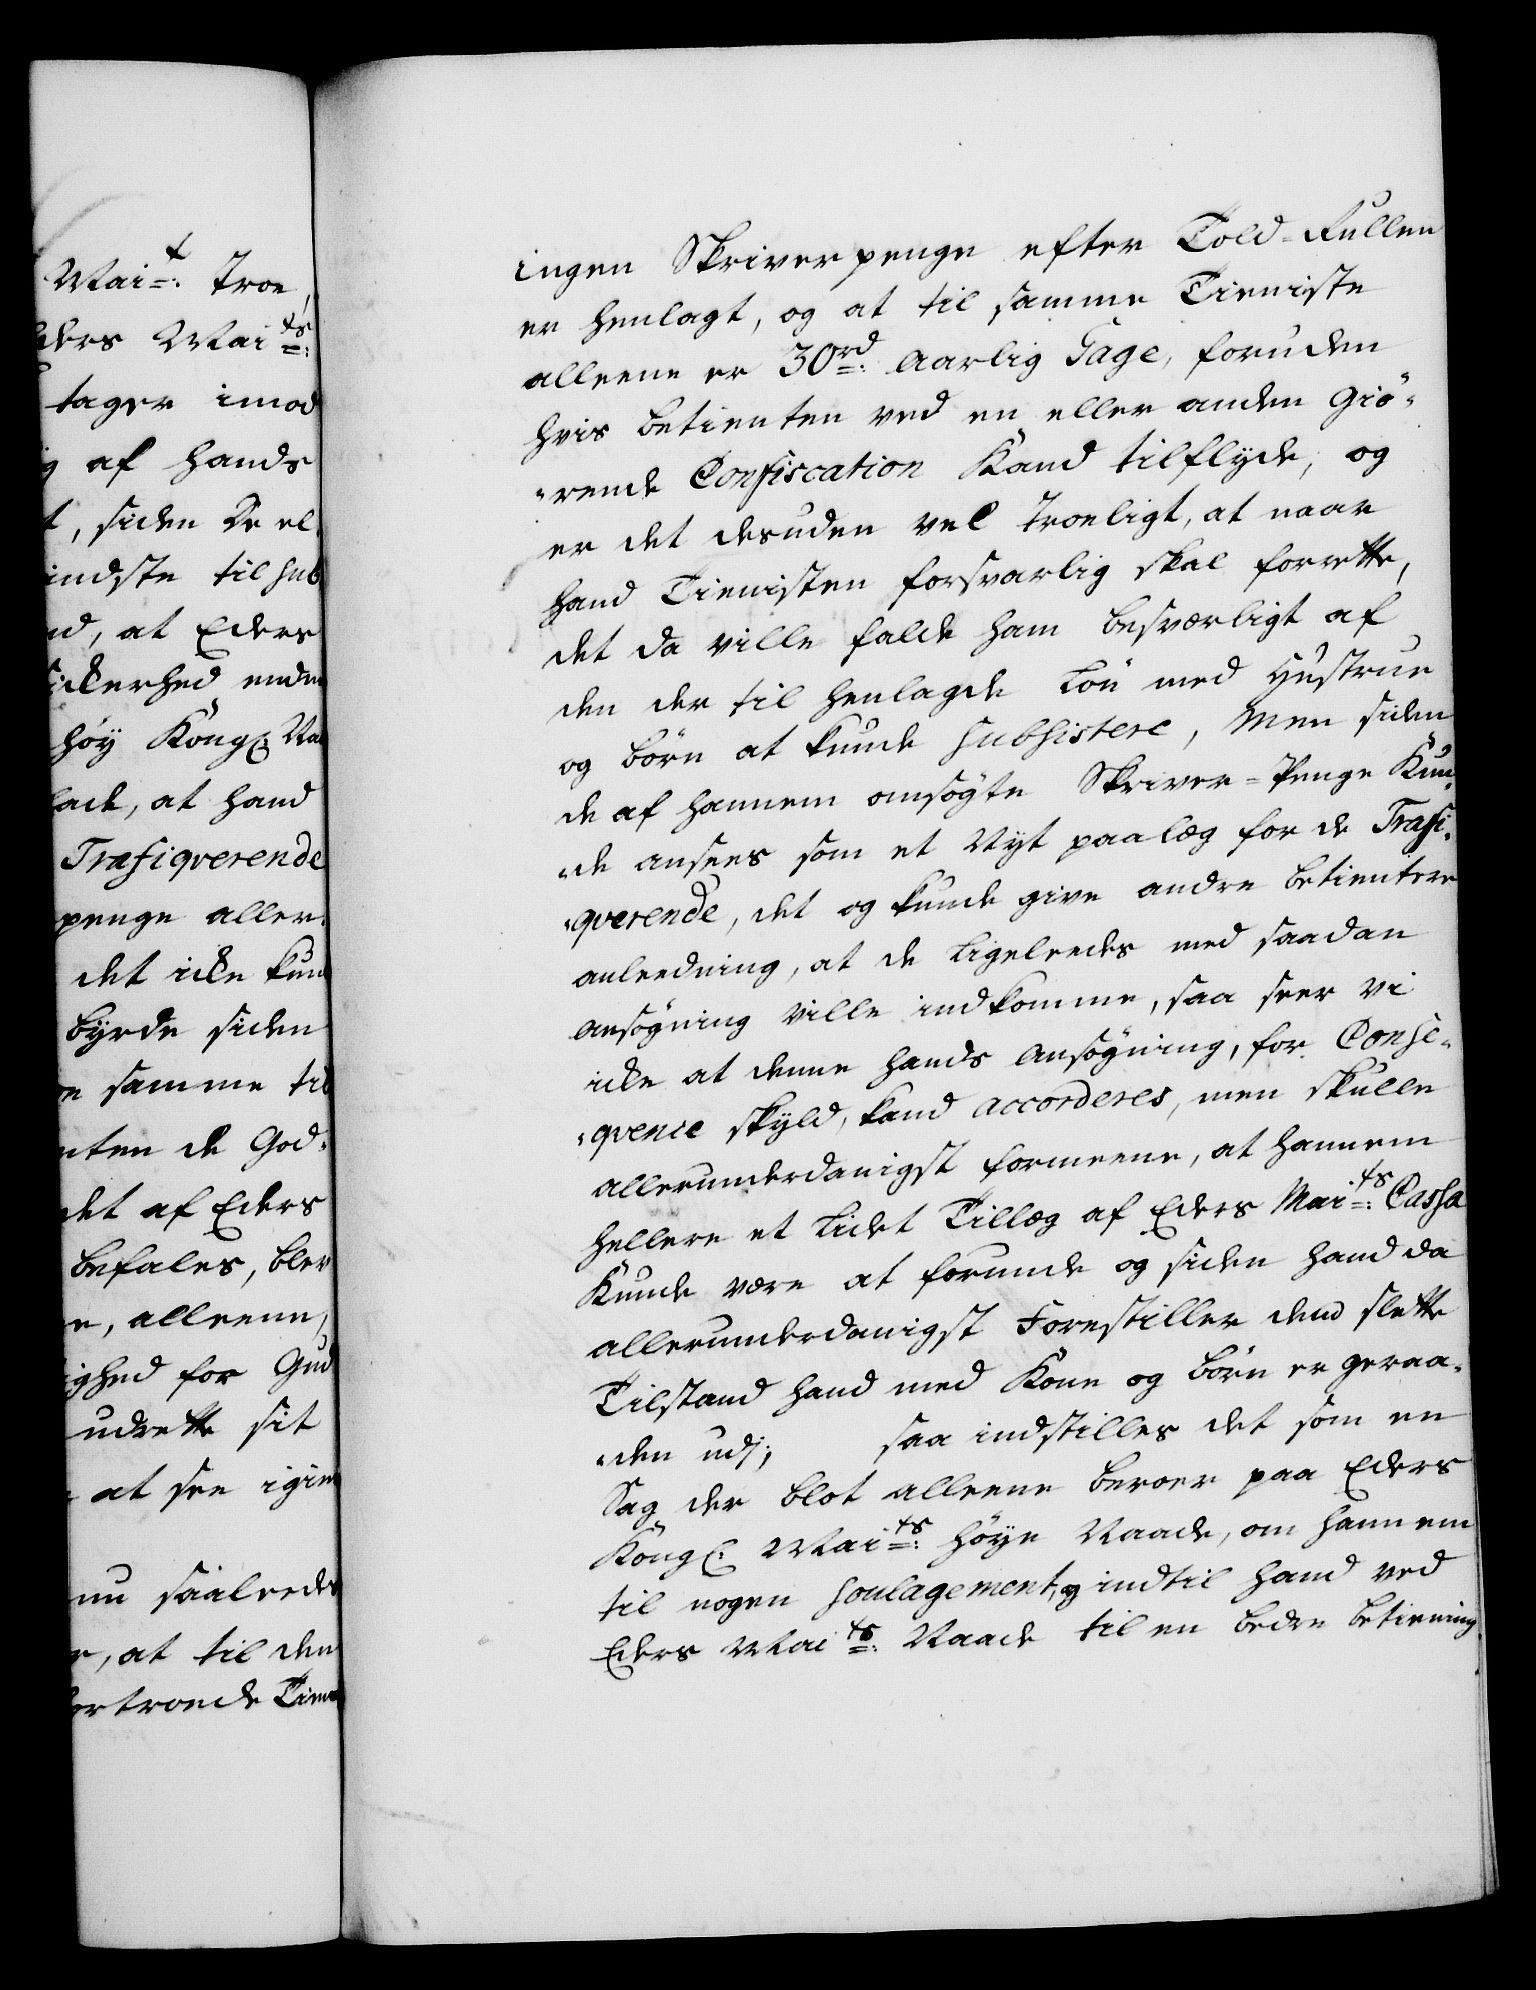 Mai-:t Troe,
ders Mai-:ts
tager imod
g af hands
t, siden De el
indste til sub
nd, at Eders
sickerhed enden
høy Kongl: Na
lade, at hand
Trafiqverende
penge aller-
det icke kun
byrde siden
e samme til
nten de God-
det af Eders
befales, blev
e, alleene,
ighed for Gud
udrette sit
at see igien
nu saaleedes
r, at til den
ertroede Tiene
ingen Skriverpenge efter Told-Rullen
er henlagt, og at til samme Tieniste
alleene er 30rd: aarlig Gage, foruden
hvis betienten ved en eller anden giö-
-rende Confiscation Kand tilflyde, og
er det desuden vel troeligt, at naar
hand Tienisten forsvarlig skal forrette,
det da ville falde ham besværligt af
den der til henlagde Lön med Hustrue
og börn at kunde subsistere, Men siden
de af hannem ansögte Skriver-Penge Kun-
-de ansees som et Nyt paalæg for de Trafi-
-qverende, det og kunde give andre betientere
anleedning, at de ligeleedes med saadan
ansögning ville indkomme, saa seer vi
icke at denne hands ansögning, for Conse-
-qvence skyld, kand accorderes, men skulle
allerunderdanigst formeene, at hannem
hellere et lidet Tillæg af Eders Mai-:ts Cassa
Kunde være at forunde og siden hand da
allerunderdanigst Forestiller dend slette
Tilstand hand med Kone og börn er geraa-
-den udj; saa indstilles det som en
Sag der blot alleene beroer paa Eders
Kongl: Mai-:ts höye Naade, om hannem
til nogen soulagement, og indtil hand ved
Eders Mai-:ts Naade til en bedre betiening